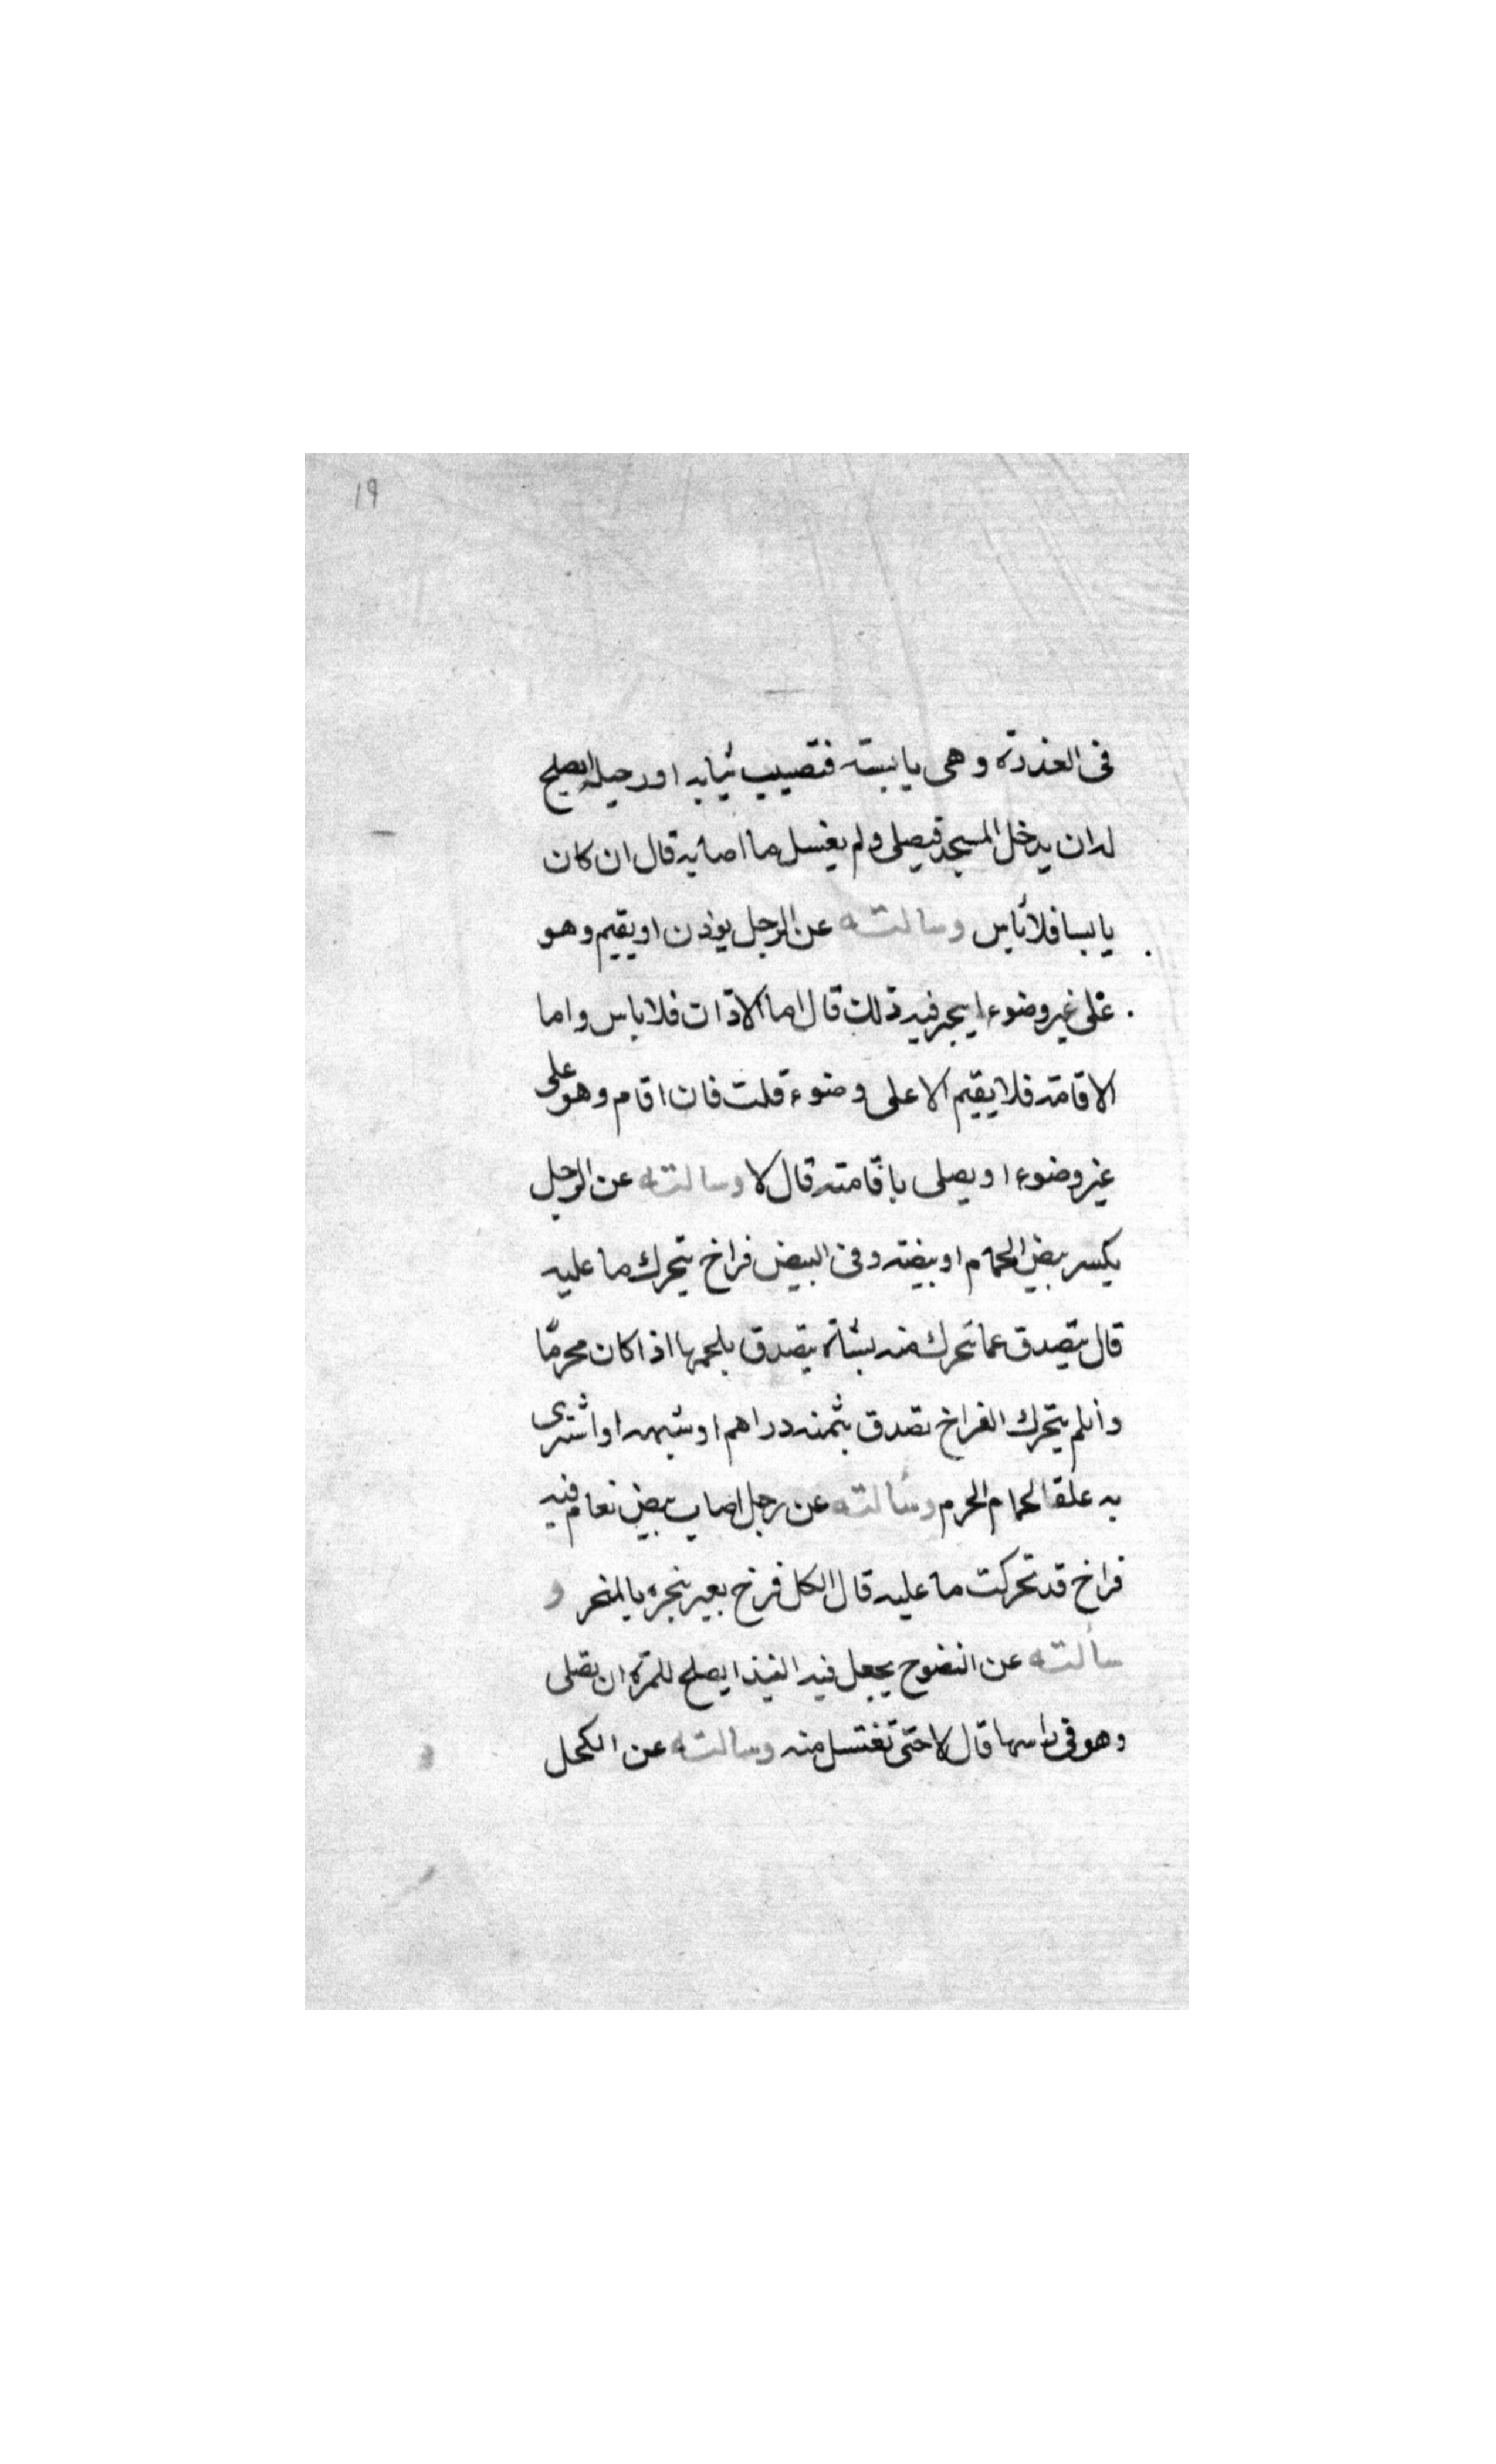 ١٩
فى العذرة وهى يابسته فتصيب ثيابه اورجيله ايصلح
له ان يدخل المسجد فيصلى ولم يغسل ما اصابه قال ان كان
يابسا فلا بأس وسالته عن الرجل يوذن او يقيم وهو
على غير وضوء ايجزيه ذلك قال اما الاذان فلا باس واما
الاقامة فلا يقيم الا على وضوء قلت فان اقام وهو على
غير وضوء او يصلى باقامته قال لا وسالته عن الرجل
يكسر بيض الحمام او بيضة وفى البيض فراخ يتحرك ما عليه
قال يتصدق عما تحرك منه بشاة يتصدق بلحمها اذا كان محرمًا
وان لم يتحرك الفراخ تصدق بثمنه دراهم او شبهه او اشترى
به علفا لحمام الحرم وسألته عن رجل اصاب بيض نعام فيه
فراخ قد تحركت ما عليه قال لكل فرخ بعير ينحره بالمنحر و
سألته عن النضوح يجعل فيه النبيذ ايصلح للمرءة ان تصلى
وهو فى راسها قال لا حتى تغتسل منه وسالته عن الكحل